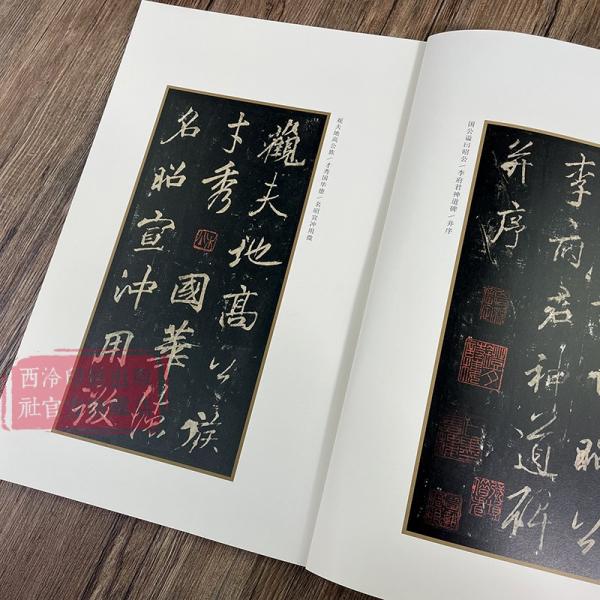 国公谥曰昭公/李府君神道碑/并序
昭公
李府君神道碑
并序
观夫地高公族/才秀国华德/名昭宣冲用微
觀夫地高公族
才秀國華德
名昭宣沖用微
西泠印
社官